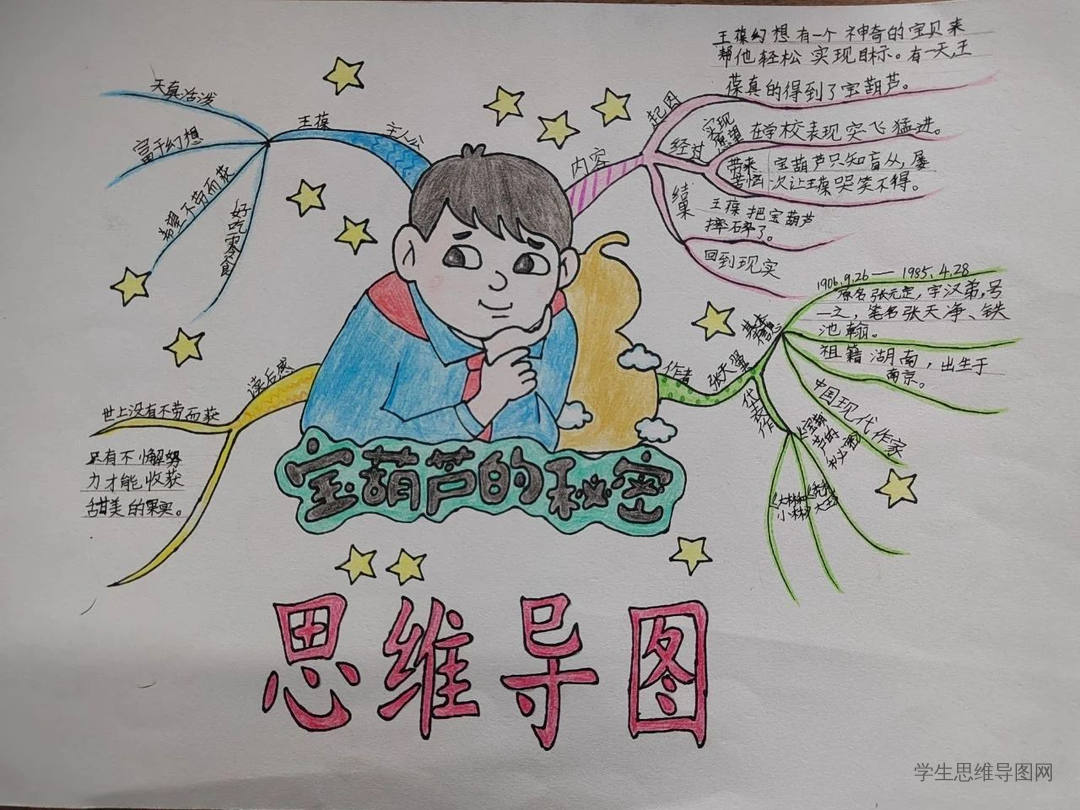 主人公
王葆
天真活泼
富于幻想
希望不劳而获
好吃零食
内容
起因
王葆幻想有一个神奇的宝贝来
帮他轻松实现目标。有一天,王
葆真的得到了宝葫芦。
经过
实现
愿望
在学校表现突飞猛进。
带来
苦恼
宝葫芦只知盲从,屡
次让王葆哭笑不得。
结果
王葆把宝葫芦
摔碎了。
回到现实
作者
张天翼
1906.9.26—1985.4.28
原名张元定,字汉弟,号
一之,笔名张天净、铁
池翰。
祖籍湖南,出生于
南京。
中国现代作家
代表作
《宝葫
芦的
秘密》
《大林和
小林》
读后感
世上没有不劳而获
只有不懈努
力才能收获
甜美的果实。
宝葫芦的秘密
思维导图
学生思维导图网